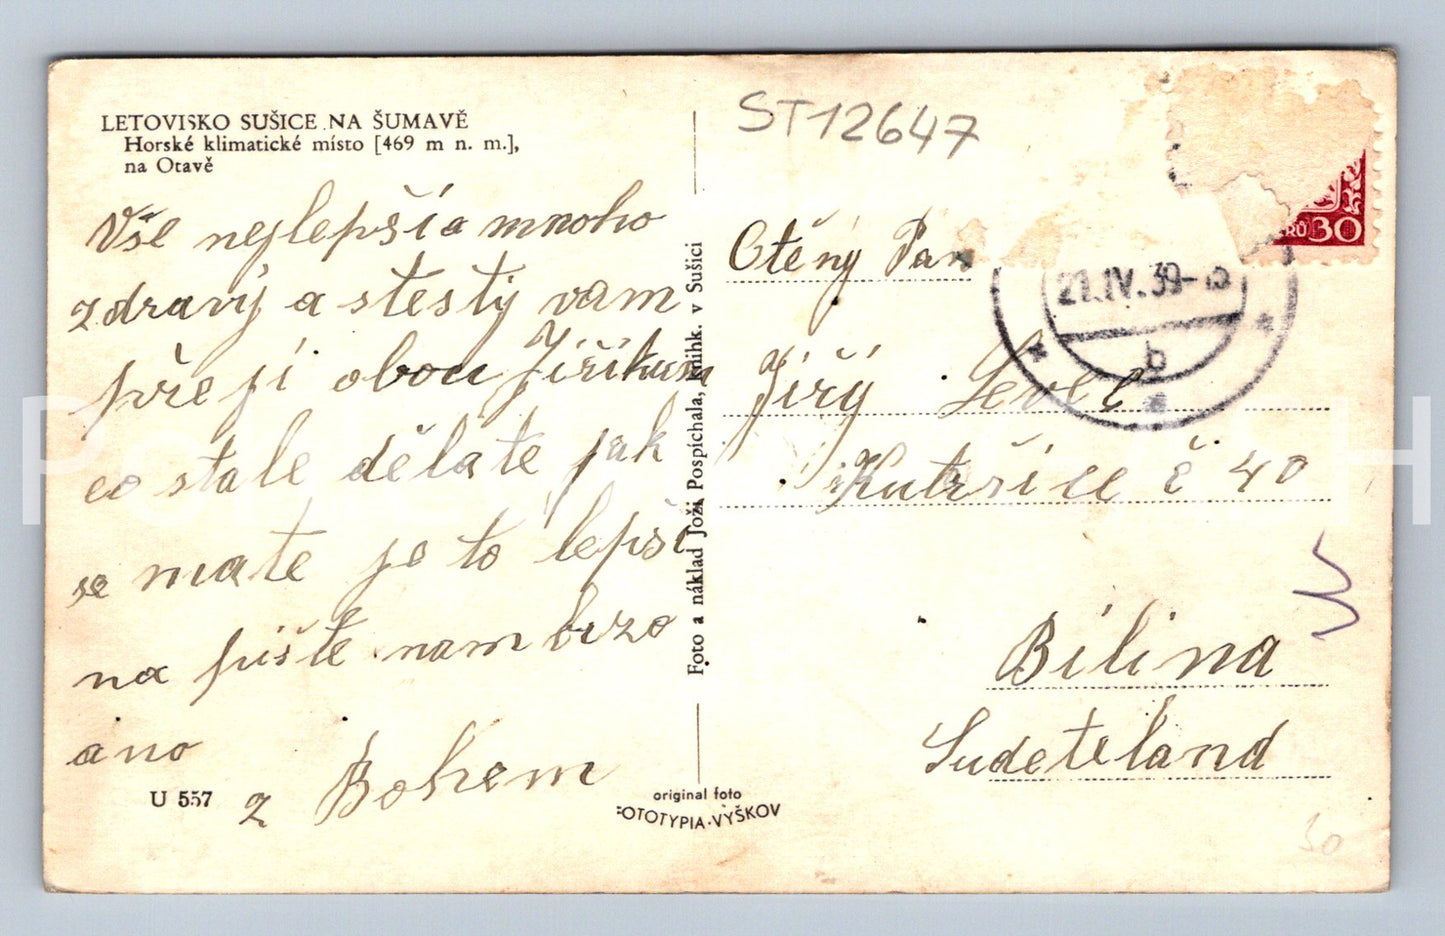 LETOVISKO SUŠICE NA ŠUMAVĚ
Horské klimatické místo [469 m n. m.],
na Otavě
Vše nejlepšía mnoho
zdravý a stestý vam
přeji obou Jiříkum
co stale dělate jak
se mate je to lepsi
na pište nam brzo
ano
z Bohem
U 557
Foto a náklad Joži Pospíchala, knihk. v Sušici
original foto
FOTOTYPIA-VYŠKOV
ST12647
30
21.IV.39
b
Ctěný Pan
Jiřý
Kutřšice č 40
Bilina
Sudeteland
30